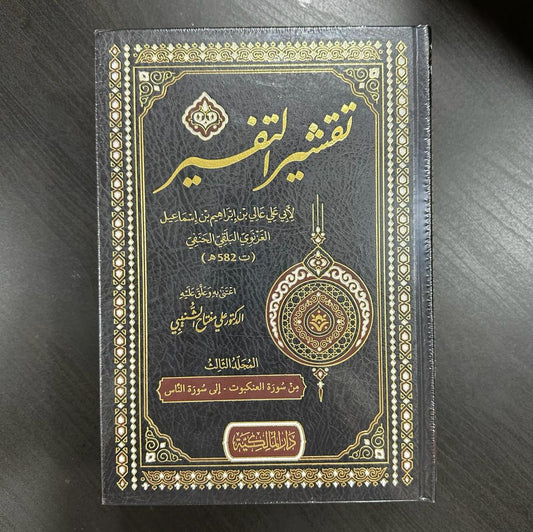 تقشير التفسير
لأبي علي عالي بن إبراهيم بن إسماعيل
الغزنوي البلقي الحنفي
(ت 582 هـ)
اعتنى به وعلق عليه
الدكتور علي مفتاح الشنيبي
المجلد الثالث
من سورة العنكبوت - إلى سورة الناس
دار المالكية